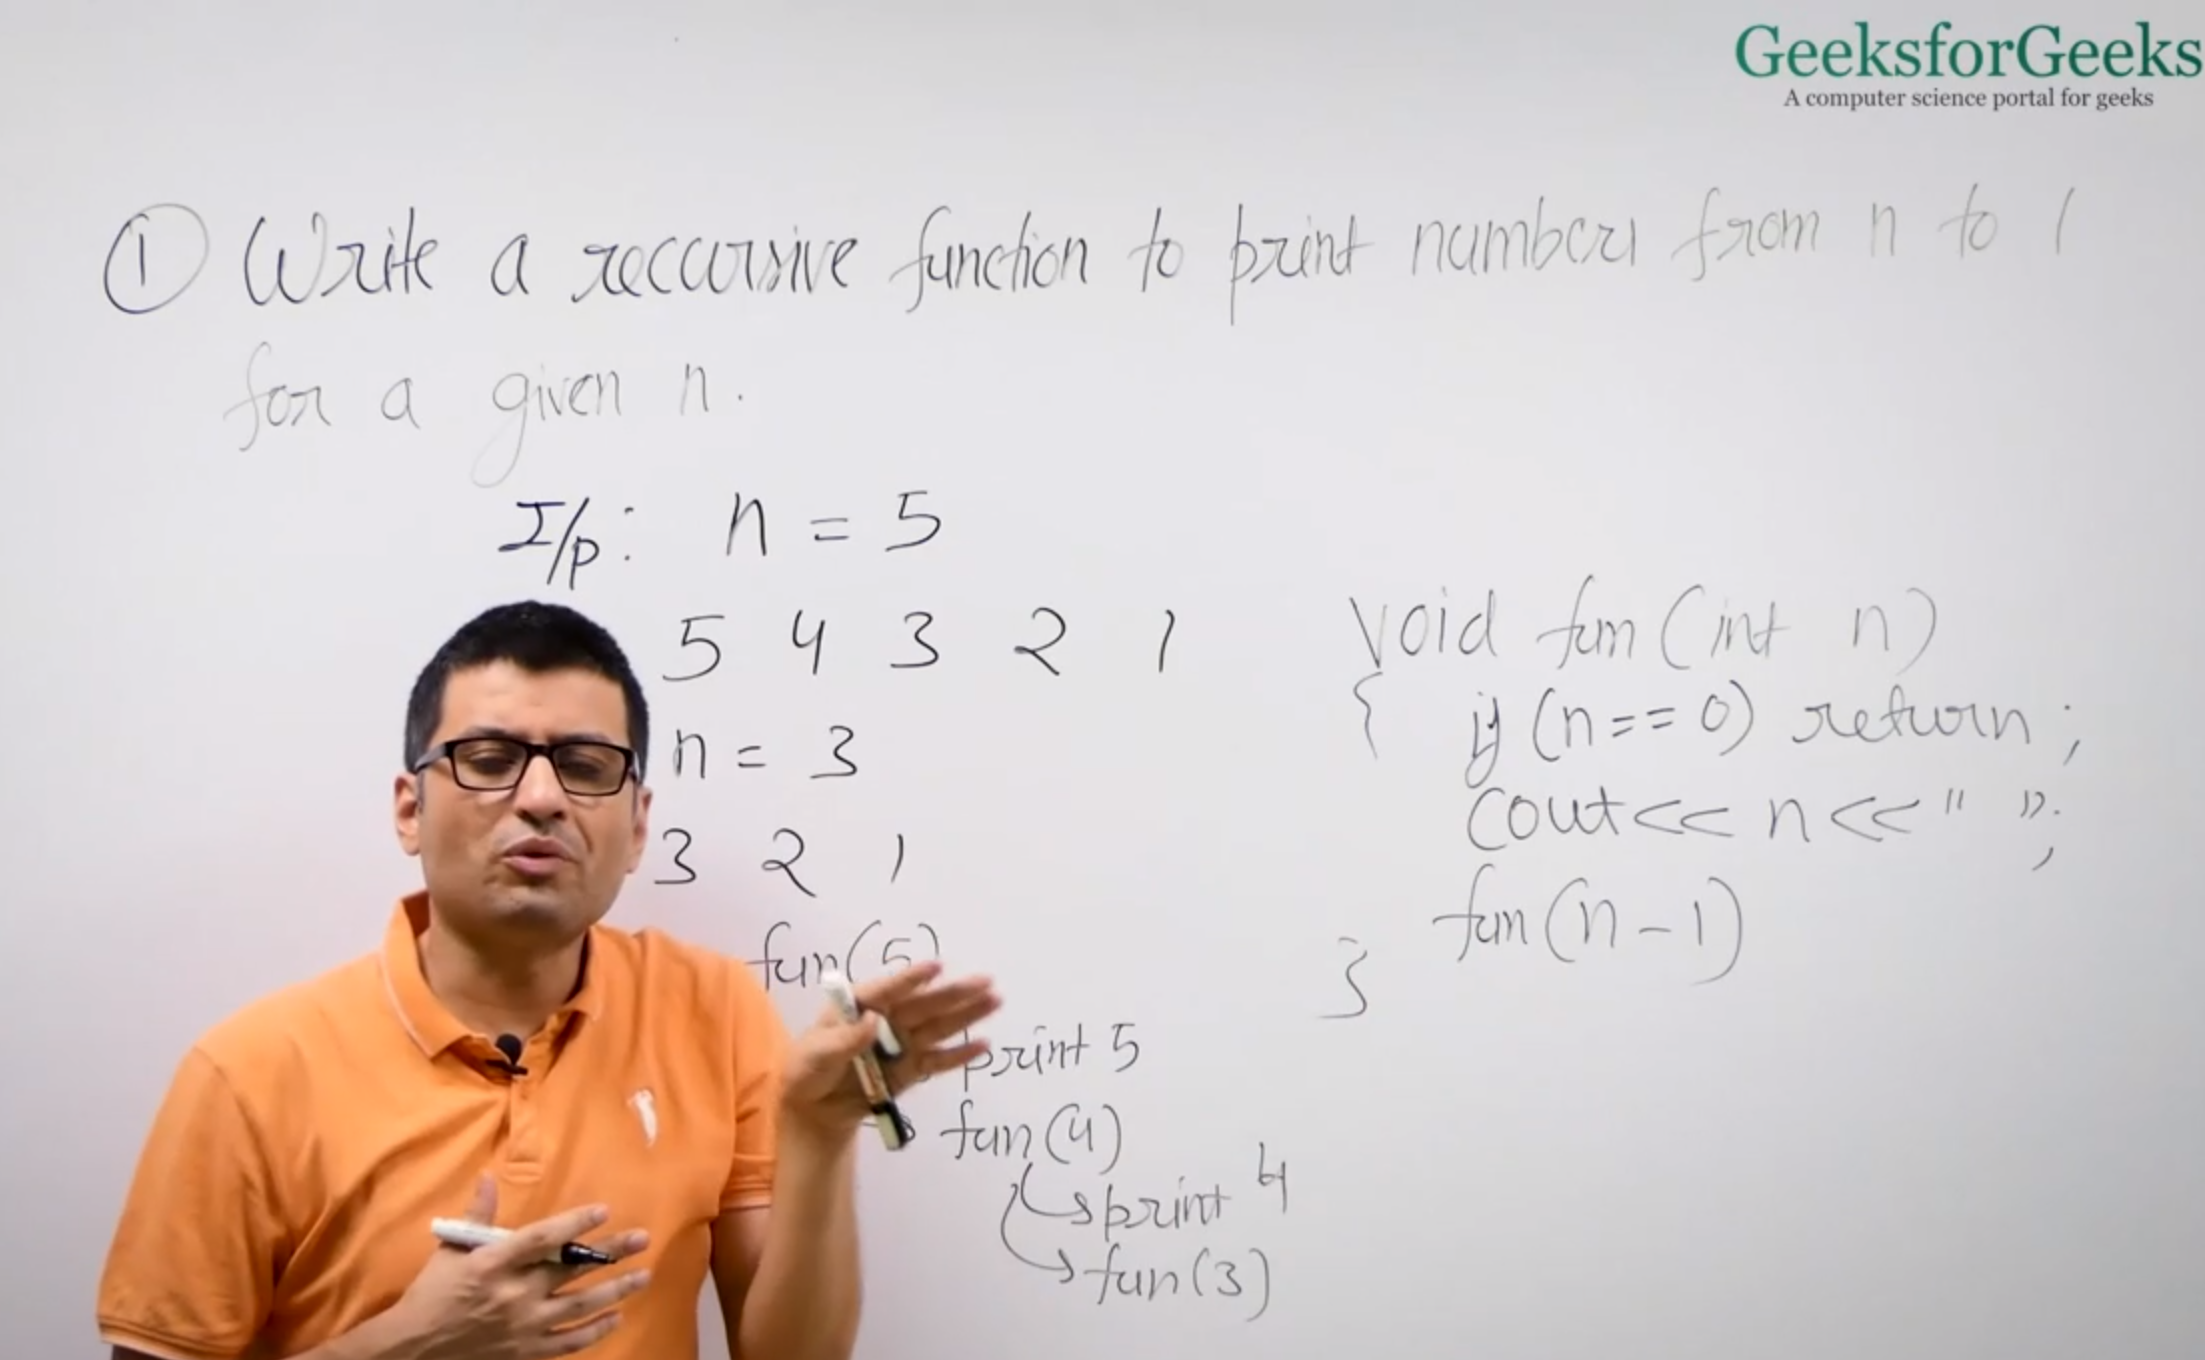 GeeksforGeeks
A computer science portal for geeks
① Write a reccursive function to print numbers from n to 1
for a given n.
I/p: n = 5
5 4 3 2 1
n = 3
3 2 1
fun(5)
print 5
fun(4)
print 4
fun(3)
void fun(int n)
{ if (n==0) return;
cout<< n <<" ";
fun(n-1)
}